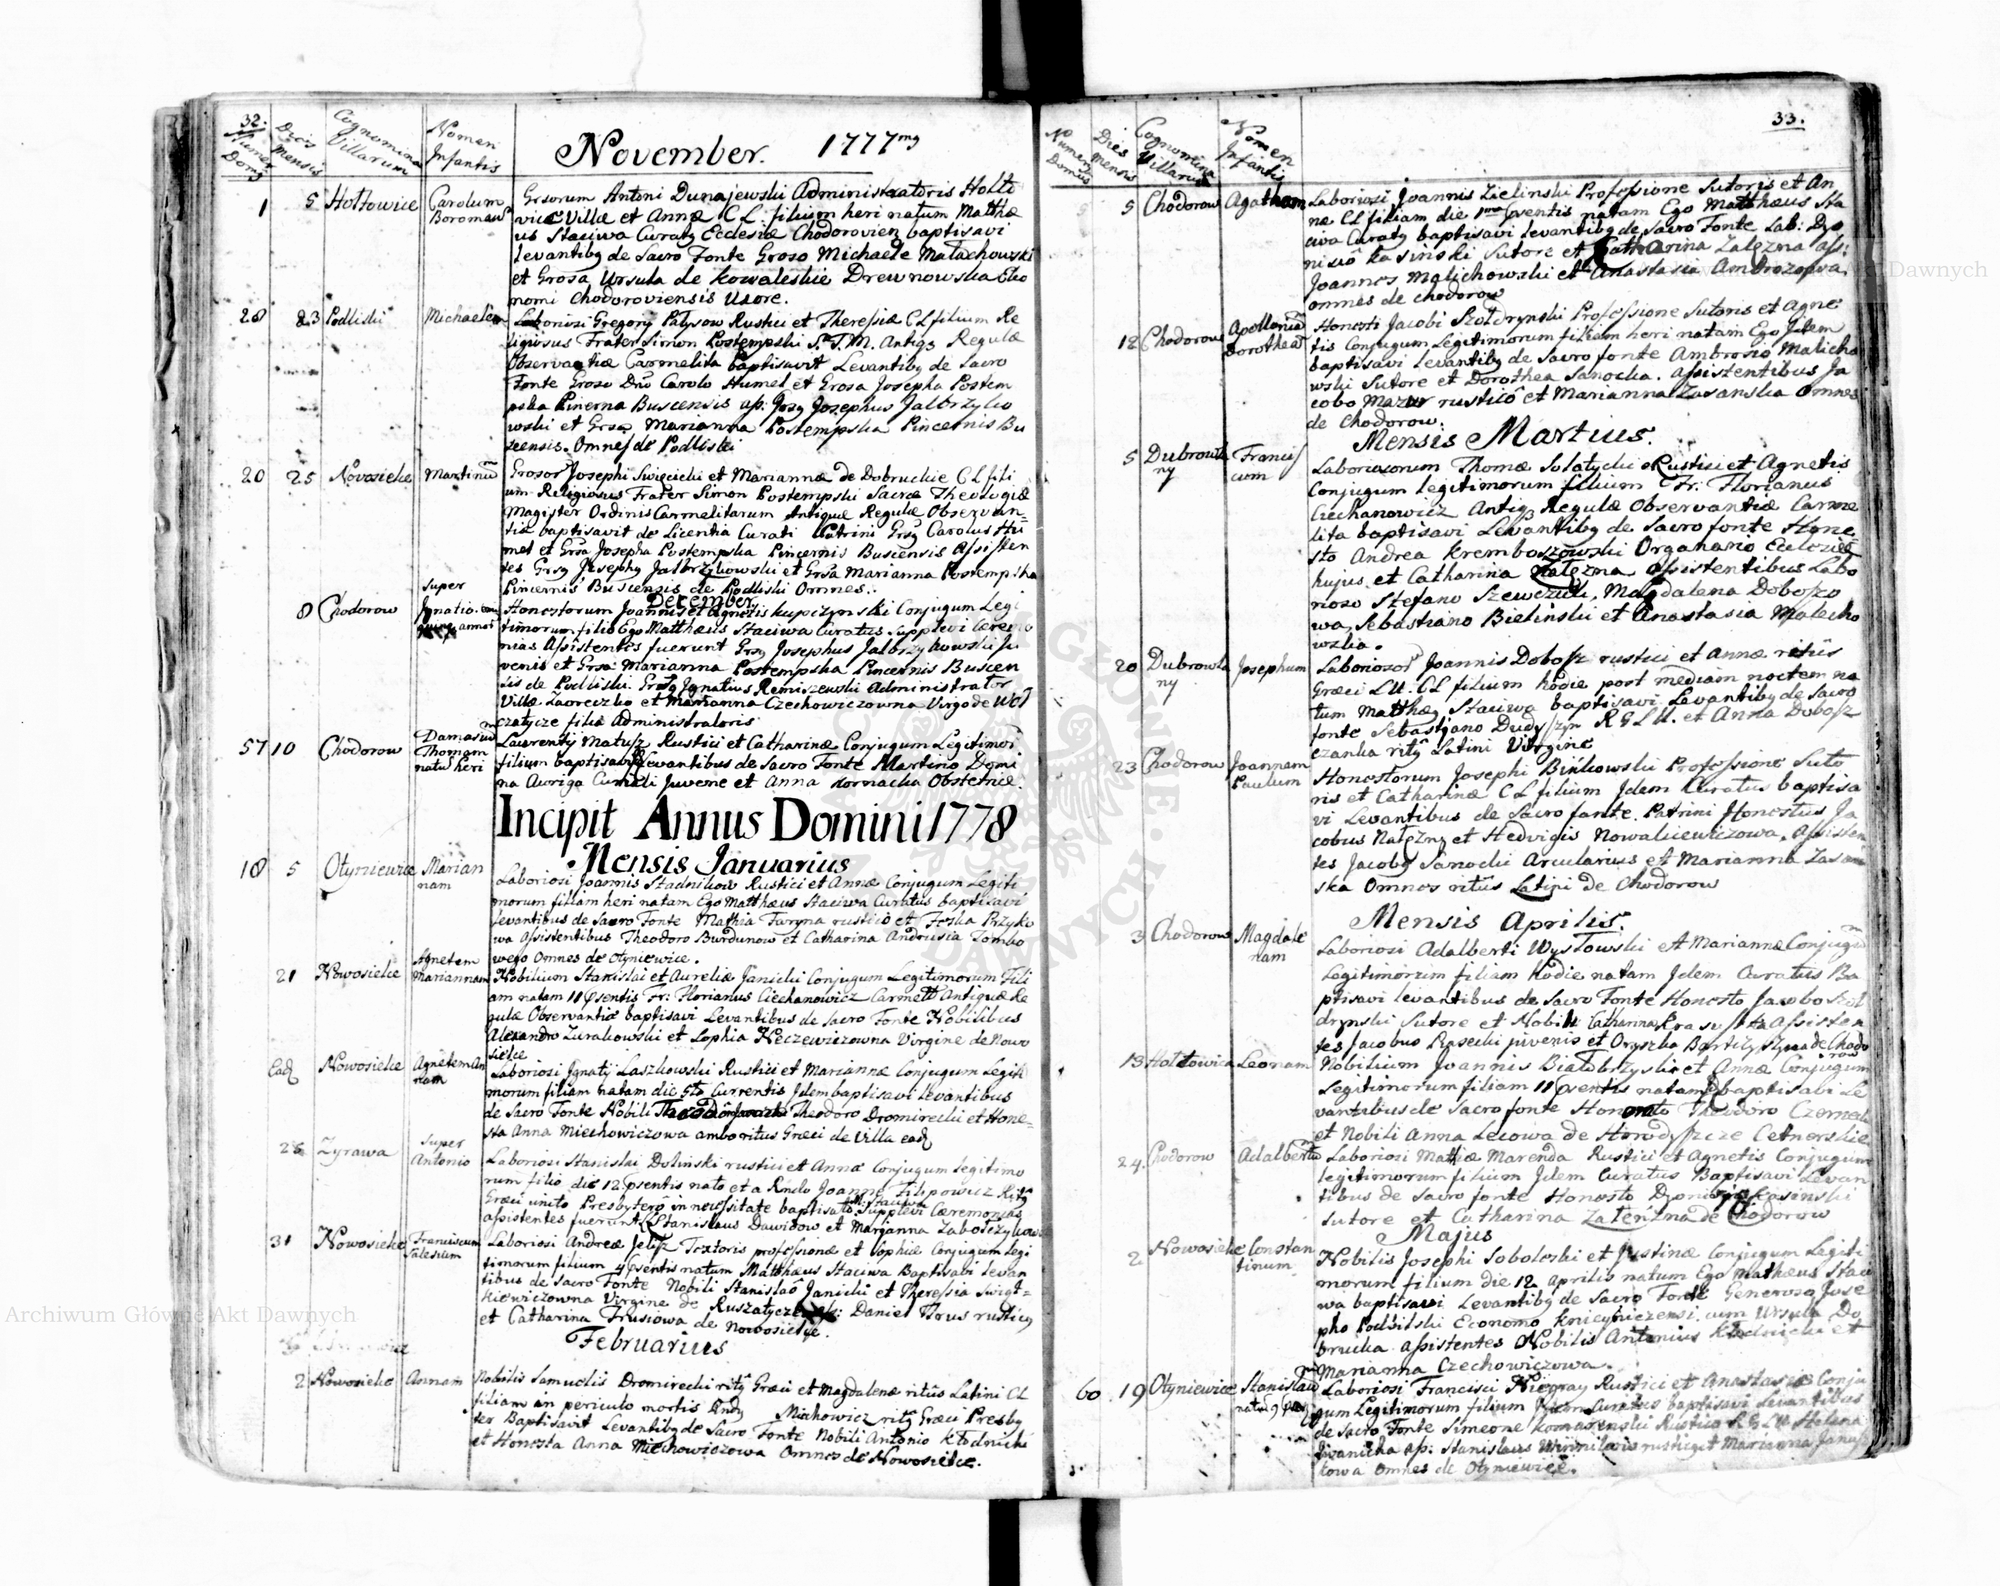 32.
Numerq Domq
Dies Mensis
Cognomina Villarum
Nomen Infantis
November. 1777mq
1 5 Hołłowice Carolum Boromaum
Grsorum Antoni Dunajewski Administratoris Hołło
vicæ Villæ et Annæ C L: filium heri natum Matthæ
us Staciwa Curatq Ecclesiæ Chodorovien baptisavi
Levantibq de Sacro Fonte Groso Michaele Małachowski
et Grosa Ursula de Kowaleskie Drewnowska Eko
nomi Chodoroviensis Uxore.
28 23 Podliski Michaelem
Laboriosi Gregory Patysow Rustici et Theressiæ C L filium Re
ligiosus Frater Simon Postempski S. T. M. Antiqæ Regulæ
Observantiæ Carmelita baptisavit Levantibq de Sacro
Fonte Groso Dno Carolo Humel et Grosa Josepha Postem
pska Pincerna Buscensis ass: Grsq Josephus Jalbrzyko
wski et Grsa Marianna Postempska Pincernis Bu
scensis. Omnes de Podliski
20 25 Novosielce Martinum
Grosor Josephi Swięcicki et Mariannæ de Dobruckie C L fili
um Religiosus Frater Simon Postempski Sacræ Theologiæ
Magister Ordinis Carmelitarum Antiquæ Regulæ Observan=
tiæ baptisavit de Licentia Curati Patrini Grsq Carolus Hu
mel et Grsa Josepha Postempska Pincernis Buscensis Assisten
tes Grsq Josephq Jalbrzykowski et Grsa Marianna Postempska
Pincernis Buscensis de Podliski Omnes.
December
8 Chodorow Super Ignatio
Honestorum Joannis et Agnetis Kupczynski Conjugum Legi
timorum filio Ego Matthæus Staciwa Curatus Supplevi Cæremo
nias Assistentes fuerunt Grsq Josephus Jalbrzykowski Ju
venis et Grsa Marianna Postempska Pincernis Buscen
sis de Podliski. Grosq Ignatius Remiszewski Administrator
Villæ Zaoreczko et Marianna Czechowiczowna Virgo de Woł
czatycze filiæ Administratoris
57 10 Chodorow Damasum Thomam natus heri
Laurentij Matusz Rustici et Catharinæ Conjugum Legitimor
filium baptisavi Levantibus de Sacro Fonte Martino Domi
na Auriga Juvene et Anna Kornacka Obstetrice.
Incipit Annus Domini 1778
Mensis Januarius
18 5 Otyniewice Mariannam
Laboriosi Joannis Stadnikow Rustici et Annæ Conjugum Legiti
morum filiam heri natam Ego Matthæus Staciwa Curatus baptisavi
Levantibus de Sacro Fonte Mathia Faryna rustico et Przyko
wa Assistentibus Theodoro Burdunow et Catharina Andrusia Tombo
wego Omnes de Otyniewice.
21 Nowosielce Agnetem Mariannam
Nobilium Stanislai et Aureliæ Janicki Conjugum Legitimorum Fili
am natam 11 præsentis Fr: Florianus Ciechanowicz Carmelit Antiquæ Re
gulæ Observantiæ baptisavi Levantibus de Sacro Fonte Nobilibus
Alexandro Zurakowski et Sophia Kleczewiczowna Virgine de Nowo
sielce
Eadq Nowosielce Agnetem Annam
Laboriosi Ignatij Laszkowski Rustici et Mariannæ Conjugum Legiti
morum filiam natam die 5to Currentis Idem baptisavi Levantibus
de Sacro Fonte Nobili Theodoro Dromirecki et Hone=
sta Anna Miechowiczowa amboritus Græci de Villa eadq
28 Zyrawa Super Antonio
Laboriosi Stanislai Dolinski rustici et Annæ Conjugum Legitimo
rum filio die 12 præsentis nato et a Rndo Joanne Filipowicz Ritq
Græci unito Presbytero in necessitate baptisato Supplevi Cæremonias
assistentes fuerunt Stanislaus Dawidow et Marjanna Zabołczykowa
31 Nowosielce Franciscum Salesium
Laboriosi Andreæ Jelisz Textoris professionæ et Sophiæ Conjugum Legi
timorum filium 4 præsentis natum Matthæus Staciwa Baptisavi Levan
tibus de Sacro Fonte Nobili Stanislao Janicki et Theressia Swigt=
kiewiczowna Virgine de Ruszatycze ass: Daniel Trus rusticq
et Catharina Trusiowa de Nowosielce.
Februarius
2 Nowosielce Annam
Nobilis Samuelis Dromirecki ritq Græci et Magdalenæ ritus Latini CL
filiam in periculo mortis Andq Miehowicz ritq Græci Presby
ter Baptisavit Levantibq de Sacro Fonte Nobili Antonio Kłodnicki
et Honesta Anna Miechowiczowa Omnes de Nowosielce.
33.
No Numerq Domus
Dies Mensis
Cognomina Villarum
Nomen Infantis
5 Chodorow Agatham
Laboriosi Joannis Zielinski Professione Sutoris et An
næ CL filiam die 1ma præsentis natam Ego Matthæus Sta
ciwa Curatq baptisavi Levantibq de Sacro Fonte Lab: Dyo
nisio Kasinski Sutore et Catharina Zalezna ass:
Joannes Malichowski et Anastasia Ambrozowa
omnes de Chodorow
12 Chodorow Apolloniam Dorotheam
Honesti Jacobi Szołdrynski Professione Sutoris et Agne
tis Conjugum Legitimorum filiam heri natam Ego Idem
baptisavi Levantibq de Sacro fonte Ambrosio Malicho
wski Sutore et Dorothea Sanocka. Assistentibus Ja
cobo Mazur rustico et Marianna Zasanska Omnes
de Chodorow.
Mensis Martius.
5 Dubrowlany Franciscum
Laboriosorum Thomæ Solatycki Rustici et Agnetis
Conjugum legitimorum filium Fr: Florianus
Ciechanowicz Antiqæ Regulæ Observantiæ Carme
lita baptisavi Levantibq de Sacro fonte Hone
sto Andrea Kremboszowski Organario Ecclesiæ
hujus et Catharina Zalezna Assistentibus Labo
rioso Stefano Szewczuk, Magdalena Doboszo
wa, Sebastiano Bielinski et Anastasia Malecho
wska.
20 Dubrowlany Josephum
Laboriosor Joannis Dobosz rustici et Annæ ritus
Græci L.U. CL filium hodie post mediam noctem na
tum Matthæq Staciwa baptisavi Levantibq de Sacro
fonte Sebastjano R G L U. et Anna Dobosz
czanka ritq Latini Virgine
23 Chodorow Joannem Paulum
Honestorum Josephi Binkowski Professione Suto
ris et Catharinæ C L filium Idem Curatus baptisa
vi Levantibus de Sacro fonte. Patrini Honestus Ja
cobus Natęzny et Hedvigis Nowalicewiczowa. Assisten
tes Jacobq Sanocki Arcularius et Marianna Zasan
ska Omnes ritus Latini de Chodorow
Mensis Aprilis.
3 Chodorow Magdalenam
Laboriosi Adalberti Wysłowski et Mariannæ Conjugum
Legitimorum filiam hodie natam Idem Curatus Ba
ptisavi Levantibus de Sacro Fonte Honesto Jacobo Szoł
drynski Sutore et Nobili Catharina Assisten
tes Jacobus Piasecki juvenis et Oryszka de Chodo
row
13 Hołłowice Leonam
Nobilium Joannis Białobrzyski et Annæ Conjugum
Legitimorum filiam 11 præsentis natam baptisavi Le
vantibus de Sacro fonte Honorato Theodoro
et Nobili Anna Lecowa de Horodyszcze Cetnerskie
24. Chodorow Adalbertum
Laboriosi Mathiæ Marenda Rustici et Agnetis Conjugum
legitimorum filium Idem Curatus Baptisavi Levan
tibus de Sacro fonte Honesto Dyonisio Kasinski
Sutore et Catharina Zalenzna de Chodorow
Majus
2 Nowosielce Constantinum
Nobilis Josephi Sobolski et Justinæ Conjugum Legiti
morum filium die 12 Aprilis natum Ego Mathæus Staci
wa baptisavi Levantibq de Sacro Fonte Generoso Jose
pho Podbilski Economo Kniehyniczensi, cum Ursula Do
brucka assistentes Nobilis Antonius Kłodnicki et
Marianna Czechowiczowa.
60 19 Otyniewice Stanislaum
Laboriosi Francisci Niegray Rustici et Anastasiæ Conju
gum Legitimorum filium Idem Curatus baptisavi Levantibus
de Sacro Fonte Simeone Komarenski Rustico R G L U Helena
Jwanicka ass: Stanislaus rustici et Marianna Janusz
kowa Omnes de Otyniewice.
Archiwum Główne Akt Dawnych